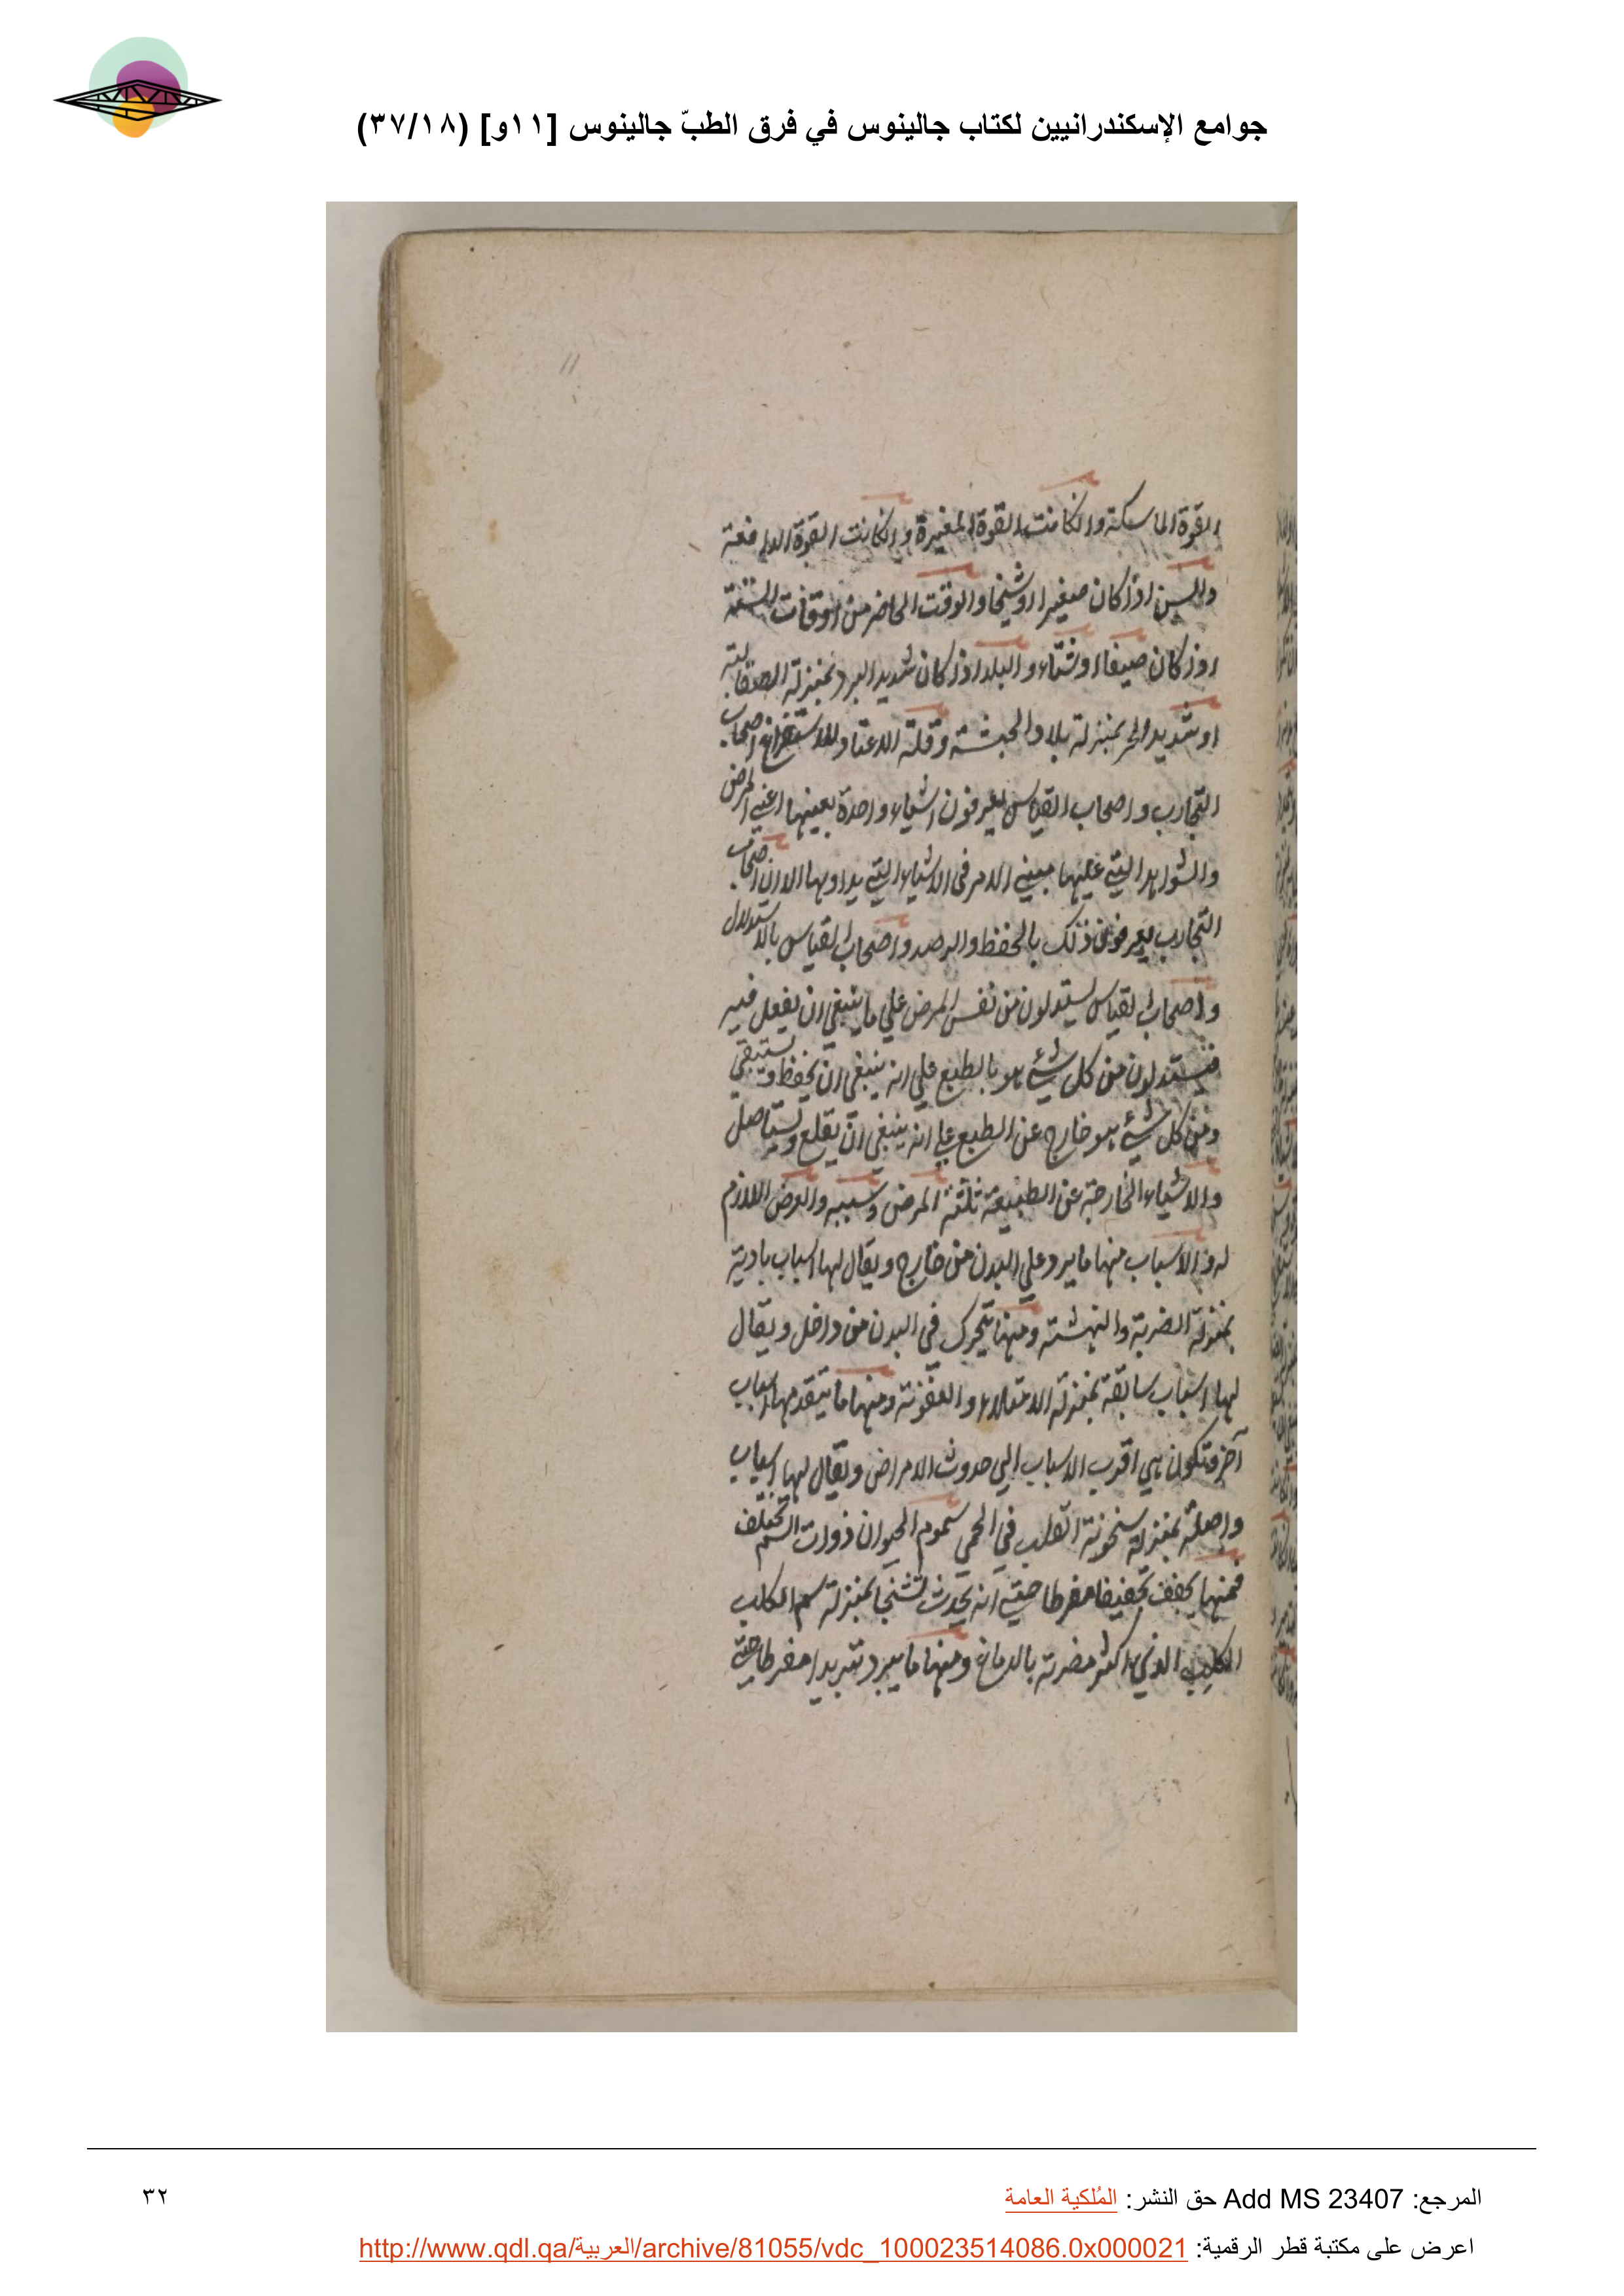 جوامع الإسكندرانيين لكتاب جالينوس في فرق الطبّ جالينوس [١١و] (٣٧/١٨)
11
القوة الماسكة وان كانت القوة المغيرة وان كانت القوة الدافعة
والسن اذا كان صغيرا او شيخا والوقت الحاضر من اوقات السنة
اذا كان صيفا او شتاء والبلد اذا كان شديد البرد بمنزلة الصقالبة
او شديد الحر بمنزلة بلاد الحبشة وقلة الاعتاد للاستفراغ اصحاب
التجارب واصحاب القياس يعرفون اشياء واحدة بعينها اعني المرض
والشواهد التي عليها مبني الامر في الاشياء التي يداوىها الا ان اصحاب
التجارب يعرفون ذلك بالحفظ والرصد واصحاب القياس بالاستدلال
واصحاب القياس يستدلون من نفس المرض علي ما ينبغي ان يفعل فيه
فيستدلون من كل شئ هو بالطبع علي انه ينبغي ان يحفظ ويستبقي
ومن كل شئ هو خارج عن الطبع علي انه ينبغي ان يقلع ويستاصل
والاشياء الخارجة عن الطبيعة ثلثة المرض وسببه والعرض اللازم
له والاسباب منها ما يرد علي البدن من خارج ويقال لها اسباب بادية
بمنزلة الضربة والنهشة ومنها يتحرك في البدن من داخل ويقال
لها اسباب سابقة بمنزلة الامتلاء والعفونة ومنها ما يتقدمها اسباب
آخر فتكون هي اقرب الاسباب الي حدوث الامراض ويقال لها اسباب
واصلة بمنزلة سخونة القلب في الحمي سموم الحيوان ذوات السم تختلف
فمنها يجفف تجفيفا مفرطا حتي انه يحدث تشنجا بمنزلة سم الكلب
الكلب الذي اكثر مضرته بالدماغ ومنها ما يبرد تبريدا مفرطا حتي
المرجع: Add MS 23407 حق النشر: المُلكية العامة
٣٢
اعرض على مكتبة قطر الرقمية: http://www.qdl.qa/العربية/archive/81055/vdc_100023514086.0x000021